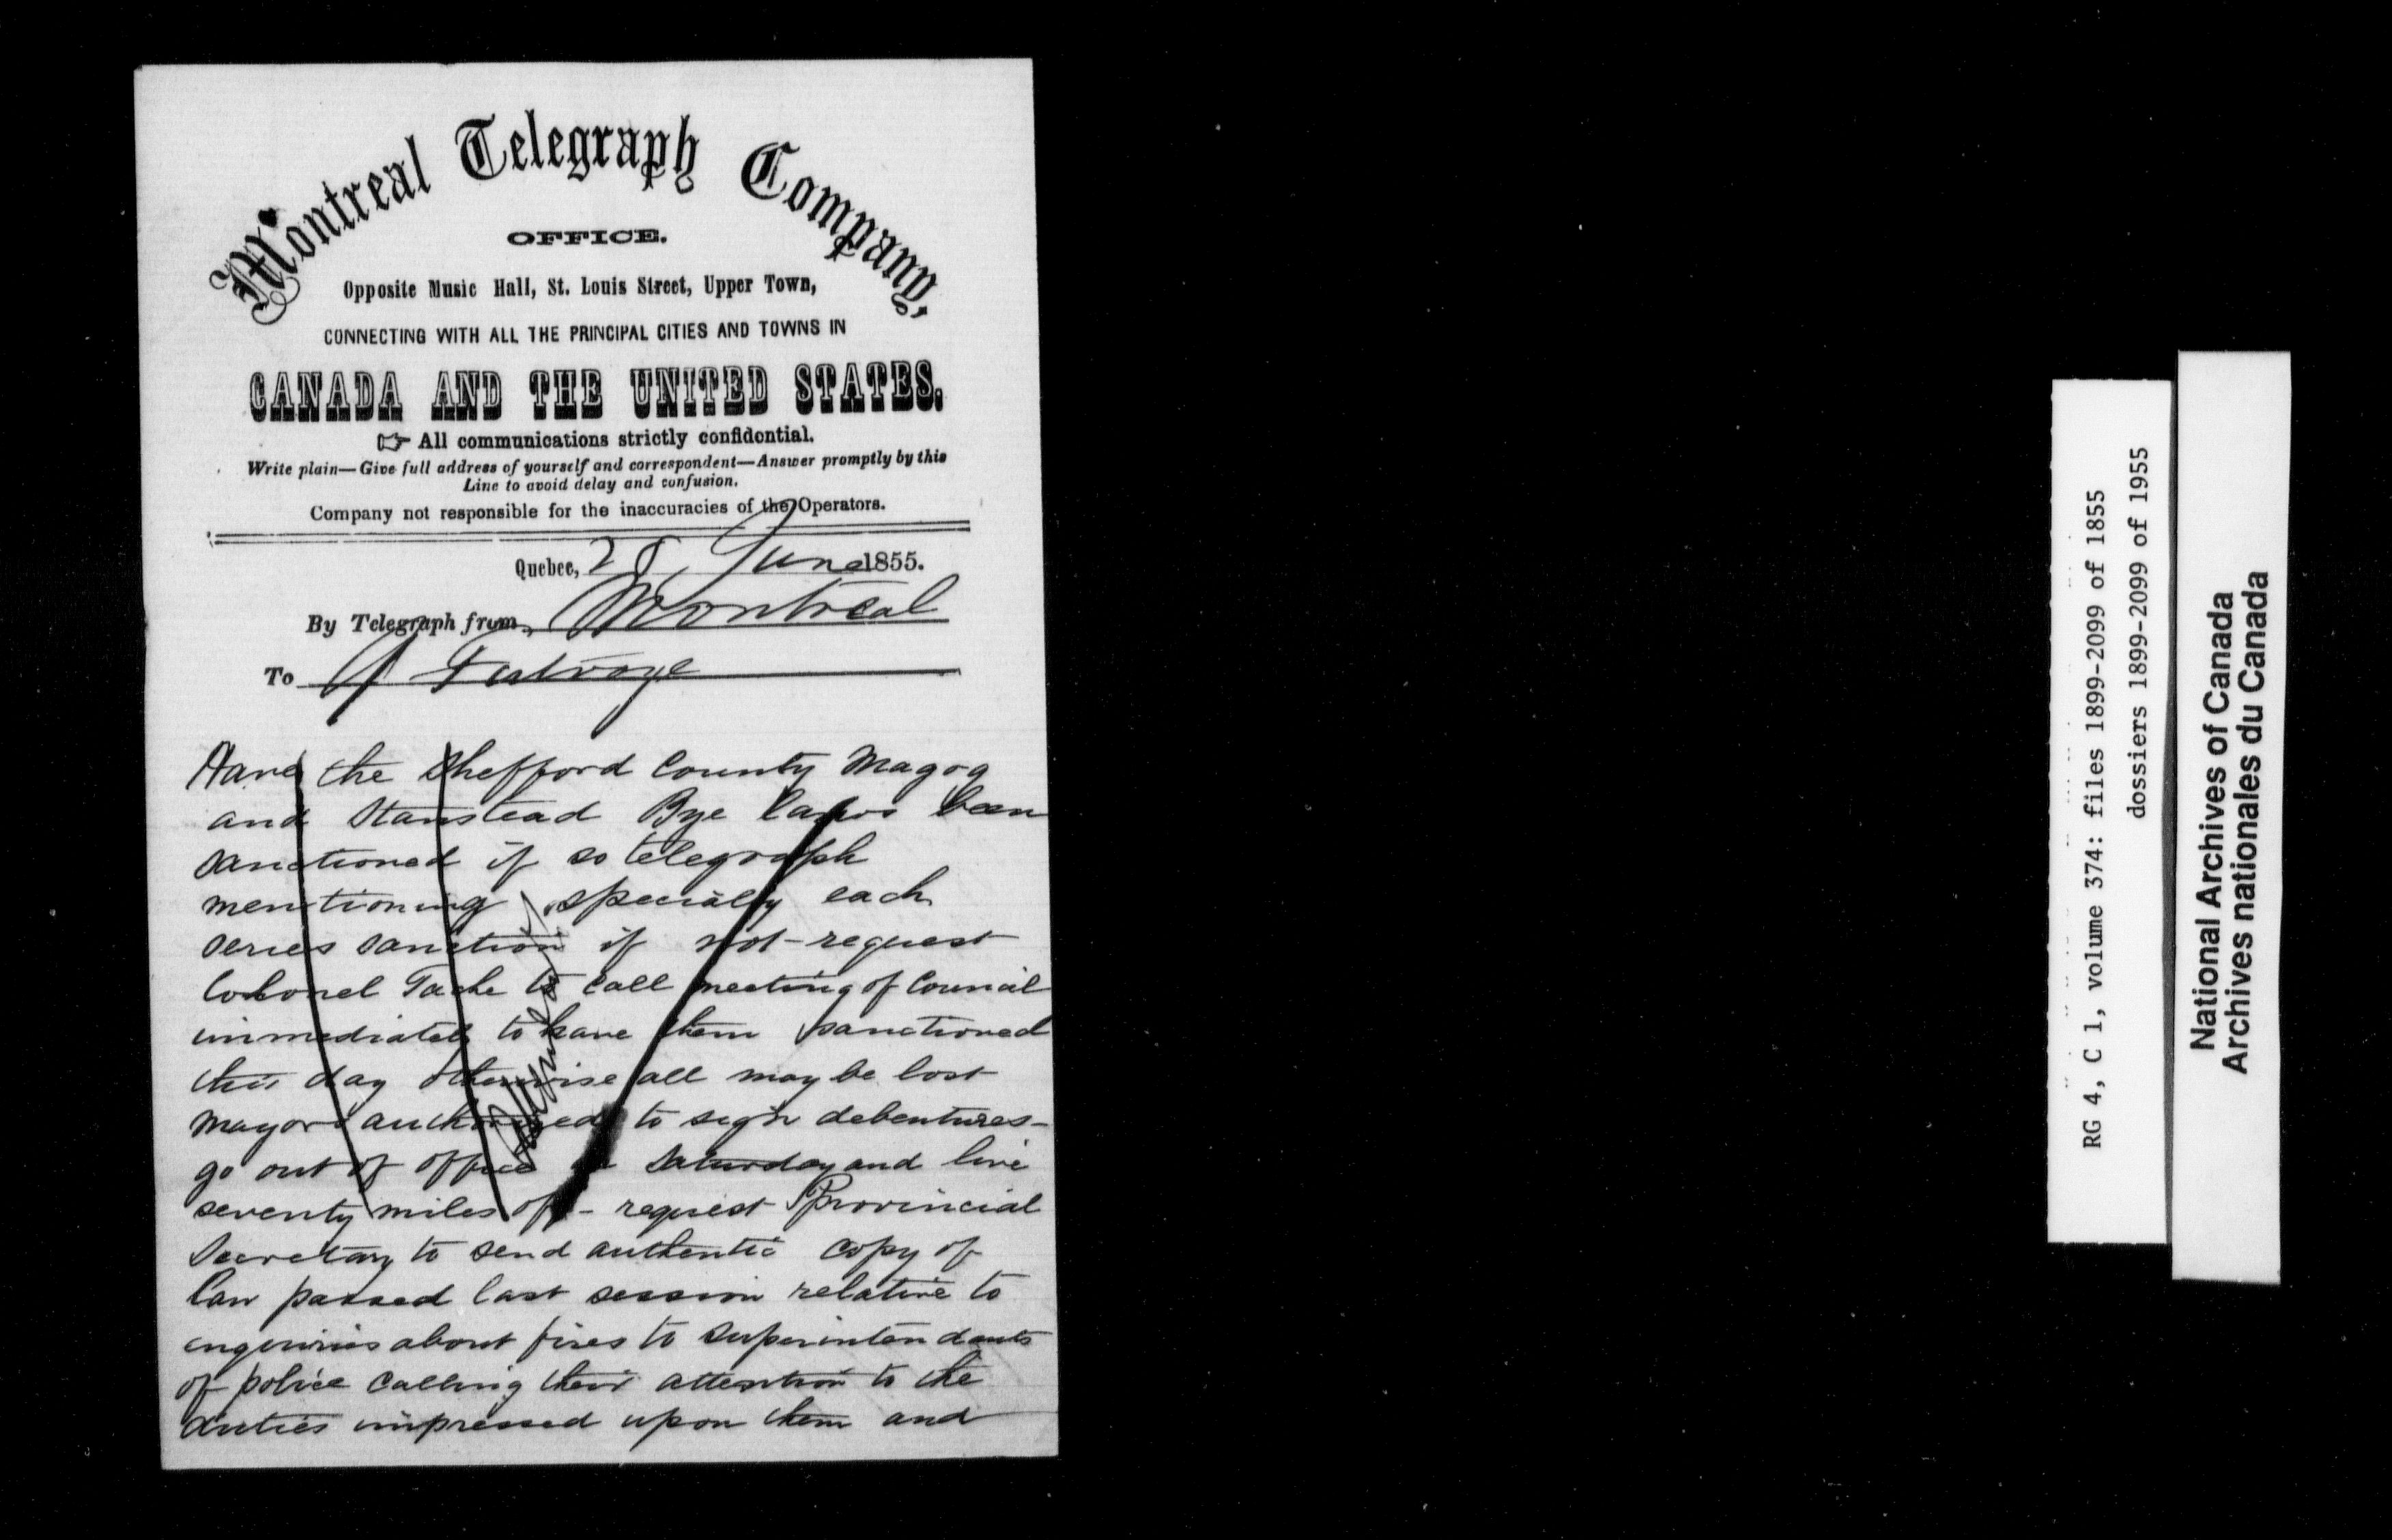 Montreal Telegraph Company,
OFFICE.
Opposite Music Hall, St. Louis Street, Upper Town,
CONNECTING WITH ALL THE PRINCIPAL CITIES AND TOWNS IN
CANADA AND THE UNITED STATES.
All communications strictly confidential.
Write plain—Give full address of yourself and correspondent—Answer promptly by this
Line to avoid delay and confusion.
Company not responsible for the inaccuracies of the Operators.
Quebec, 28 June 1855.
By Telegraph from Montreal
To
Have the Shefford County Magog
and Stanstead Bye laws been
sanctioned if so telegraph
mentioning specially each
series sanction if not - request
Colonel Tache to call meeting of Council
immediately to have them sanctioned
this day otherwise all may be lost
mayors authorized to sign debentures -
go out of office on Saturday and live
seventy miles off - request Provincial
Secretary to send authentic copy of
law passed last session relative to
enquiries about fires to Superintendants
of police calling their attention to the
duties impressed upon them and
RG 4, C 1, volume 374: files 1899-2099 of 1855
dossiers 1899-2099 of 1955
National Archives of Canada
Archives nationales du Canada